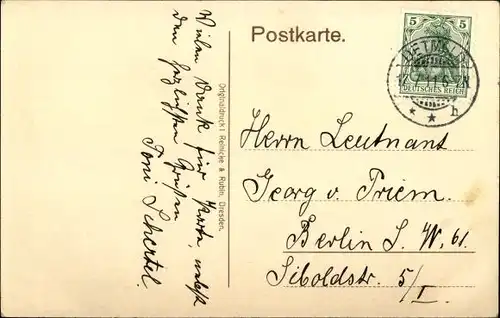 Postkarte.
5 5
DETMOLD
17.7.11.6-7N
DEUTSCHES REICH
* * b
Vielen Dank für Karte, nebst
den herzlichsten Grüßen
Toni Schertel.
Originaldruck: Reinicke & Rubin, Dresden.
Herrn Leutnant
Georg v. Priem.
Berlin S. W. 61.
Siboldstr. 5/I.